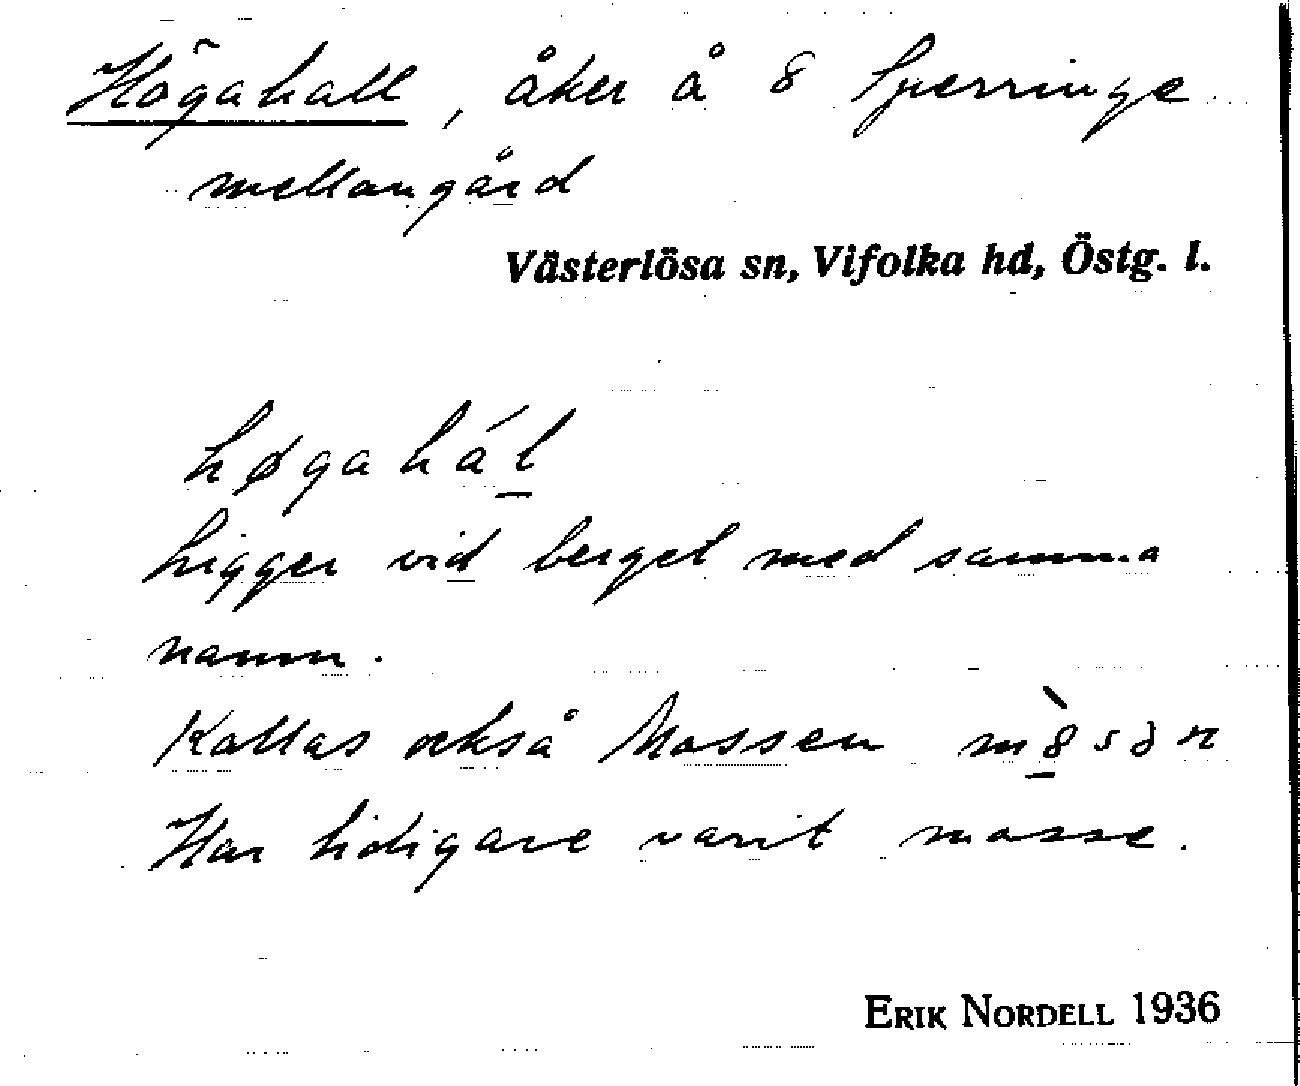 Högahall, åker å 8 Sperringe
mellangård
Västerlösa sn, Vifolka hd, Östg. l.
høgahál
Ligger vid berget med samma
namn.
Kallas också Mossen m8̀sən
Har tidigare varit mosse.
ERIK NORDELL 1936